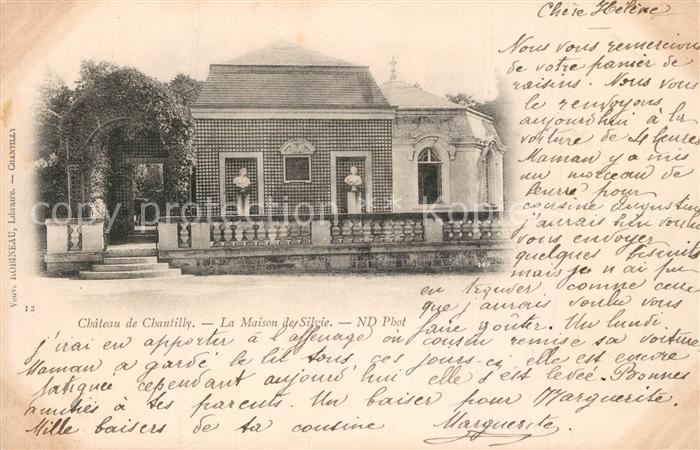 Chère Hélène
Nous vous remercions
de votre panier de
raisins. Nous vous
le renvoyons
aujourd'hui à la
voiture de 4 heures
Maman y a mis
un morceau de
beurre pour
cousine Augustine
j'aurais bien voulu
vous envoyer
quelques biscuits
mais je n'ai pu
en trouver comme ceux
que j'aurais voulu vous
faire goûter. Un lundi
j'irai en apporter à l'affenage où cousin remise sa voiture
Maman a gardé le lit tous ces jours-ci elle est encore
fatiguée cependant aujourd'hui elle s'est levée. Bonnes
amitiés à tes parents. Un baiser pour Marguerite.
Mille baisers de ta cousine Marguerite.
Château de Chantilly. — La Maison de Silvie. — ND Phot
12
149
Veuve ROBINEAU, Libraire. — CHANTILLY
copyright protection Copyright